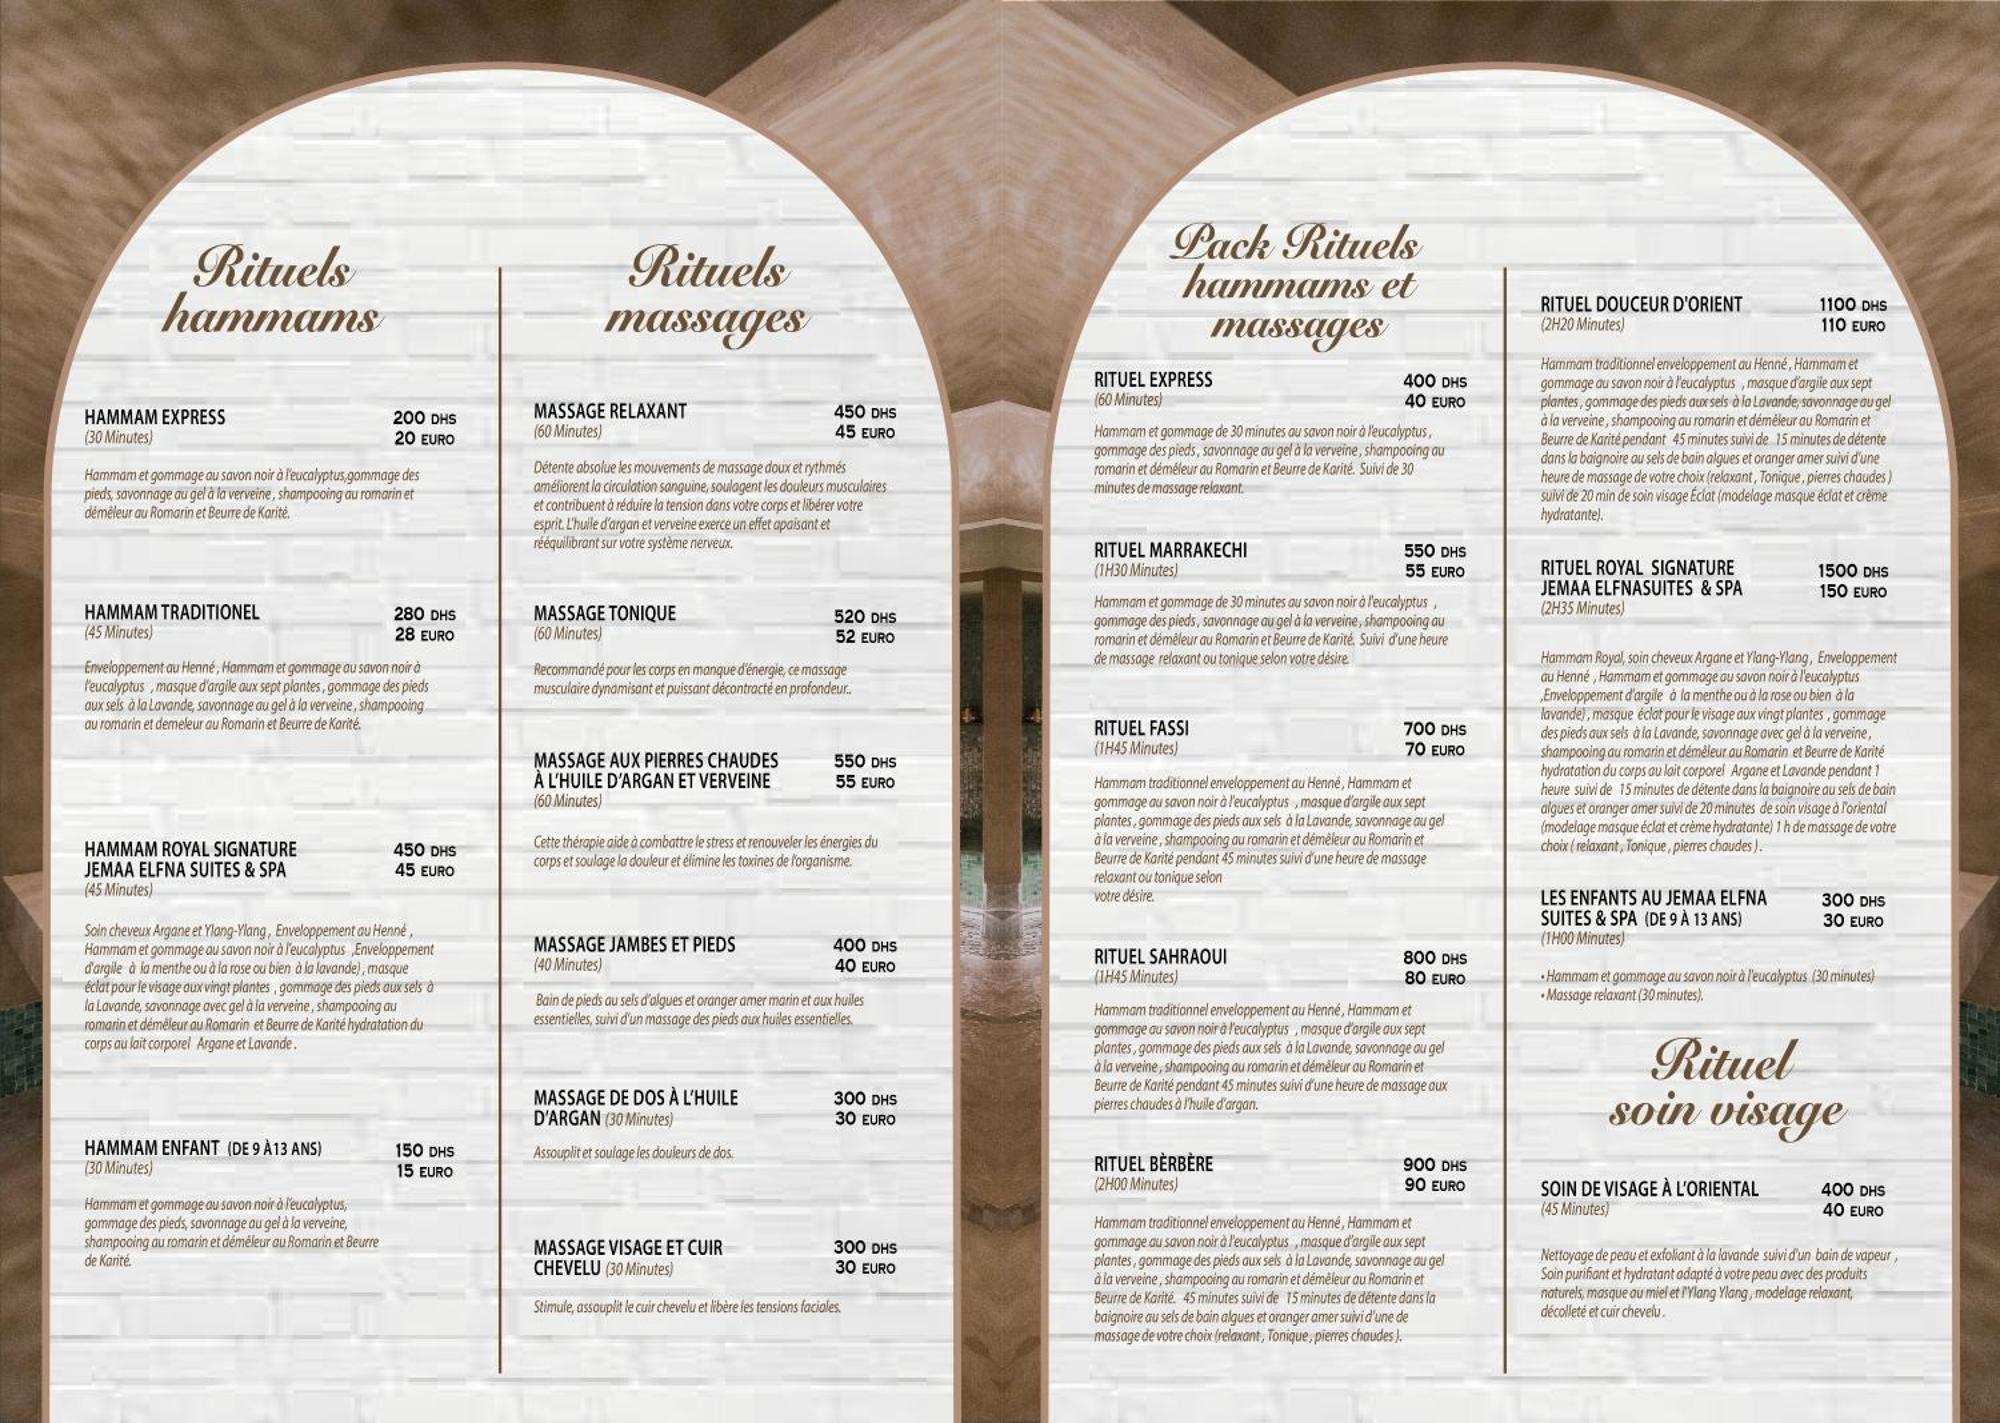 Rituels
hammams
HAMMAM EXPRESS 200 DHS
(30 Minutes) 20 EURO
Hammam et gommage au savon noir à l'eucalyptus,gommage des
pieds, savonnage au gel à la verveine , shampooing au romarin et
démêleur au Romarin et Beurre de Karité.
HAMMAM TRADITIONEL 280 DHS
(45 Minutes) 28 EURO
Enveloppement au Henné , Hammam et gommage au savon noir à
l'eucalyptus , masque d'argile aux sept plantes , gommage des pieds
aux sels à la Lavande, savonnage au gel à la verveine , shampooing
au romarin et demeleur au Romarin et Beurre de Karité.
HAMMAM ROYAL SIGNATURE 450 DHS
JEMAA ELFNA SUITES & SPA 45 EURO
(45 Minutes)
Soin cheveux Argane et Ylang-Ylang , Enveloppement au Henné ,
Hammam et gommage au savon noir à l'eucalyptus ,Enveloppement
d'argile à la menthe ou à la rose ou bien à la lavande) , masque
éclat pour le visage aux vingt plantes , gommage des pieds aux sels à
la Lavande, savonnage avec gel à la verveine , shampooing au
romarin et démêleur au Romarin et Beurre de Karité hydratation du
corps au lait corporel Argane et Lavande .
HAMMAM ENFANT (DE 9 À13 ANS) 150 DHS
(30 Minutes) 15 EURO
Hammam et gommage au savon noir à l'eucalyptus,
gommage des pieds, savonnage au gel à la verveine,
shampooing au romarin et démêleur au Romarin et Beurre
de Karité.
Rituels
massages
MASSAGE RELAXANT 450 DHS
(60 Minutes) 45 EURO
Détente absolue les mouvements de massage doux et rythmés
améliorent la circulation sanguine, soulagent les douleurs musculaires
et contribuent à réduire la tension dans votre corps et libérer votre
esprit. L'huile d'argan et verveine exerce un effet apaisant et
rééquilibrant sur votre système nerveux.
MASSAGE TONIQUE 520 DHS
(60 Minutes) 52 EURO
Recommandé pour les corps en manque d'énergie, ce massage
musculaire dynamisant et puissant décontracté en profondeur..
MASSAGE AUX PIERRES CHAUDES 550 DHS
À L'HUILE D'ARGAN ET VERVEINE 55 EURO
(60 Minutes)
Cette thérapie aide à combattre le stress et renouveler les énergies du
corps et soulage la douleur et élimine les toxines de l'organisme.
MASSAGE JAMBES ET PIEDS 400 DHS
(40 Minutes) 40 EURO
Bain de pieds au sels d'algues et oranger amer marin et aux huiles
essentielles, suivi d'un massage des pieds aux huiles essentielles.
MASSAGE DE DOS À L'HUILE 300 DHS
D'ARGAN (30 Minutes) 30 EURO
Assouplit et soulage les douleurs de dos.
MASSAGE VISAGE ET CUIR 300 DHS
CHEVELU (30 Minutes) 30 EURO
Stimule, assouplit le cuir chevelu et libère les tensions faciales.
Pack Rituels
hammams et
massages
RITUEL EXPRESS 400 DHS
(60 Minutes) 40 EURO
Hammam et gommage de 30 minutes au savon noir à l'eucalyptus ,
gommage des pieds , savonnage au gel à la verveine , shampooing au
romarin et démêleur au Romarin et Beurre de Karité. Suivi de 30
minutes de massage relaxant.
RITUEL MARRAKECHI 550 DHS
(1H30 Minutes) 55 EURO
Hammam et gommage de 30 minutes au savon noir à l'eucalyptus ,
gommage des pieds , savonnage au gel à la verveine , shampooing au
romarin et démêleur au Romarin et Beurre de Karité. Suivi d'une heure
de massage relaxant ou tonique selon votre désire.
RITUEL FASSI 700 DHS
(1H45 Minutes) 70 EURO
Hammam traditionnel enveloppement au Henné , Hammam et
gommage au savon noir à l'eucalyptus , masque d'argile aux sept
plantes , gommage des pieds aux sels à la Lavande, savonnage au gel
à la verveine , shampooing au romarin et démêleur au Romarin et
Beurre de Karité pendant 45 minutes suivi d'une heure de massage
relaxant ou tonique selon
votre désire.
RITUEL SAHRAOUI 800 DHS
(1H45 Minutes) 80 EURO
Hammam traditionnel enveloppement au Henné , Hammam et
gommage au savon noir à l'eucalyptus , masque d'argile aux sept
plantes , gommage des pieds aux sels à la Lavande, savonnage au gel
à la verveine , shampooing au romarin et démêleur au Romarin et
Beurre de Karité pendant 45 minutes suivi d'une heure de massage aux
pierres chaudes à l'huile d'argan.
RITUEL BÈRBÈRE 900 DHS
(2H00 Minutes) 90 EURO
Hammam traditionnel enveloppement au Henné , Hammam et
gommage au savon noir à l'eucalyptus , masque d'argile aux sept
plantes , gommage des pieds aux sels à la Lavande, savonnage au gel
à la verveine , shampooing au romarin et démêleur au Romarin et
Beurre de Karité. 45 minutes suivi de 15 minutes de détente dans la
baignoire au sels de bain algues et oranger amer suivi d'une de
massage de votre choix (relaxant , Tonique , pierres chaudes ).
RITUEL DOUCEUR D'ORIENT 1100 DHS
(2H20 Minutes) 110 EURO
Hammam traditionnel enveloppement au Henné , Hammam et
gommage au savon noir à l'eucalyptus , masque d'argile aux sept
plantes , gommage des pieds aux sels à la Lavande, savonnage au gel
à la verveine , shampooing au romarin et démêleur au Romarin et
Beurre de Karité pendant 45 minutes suivi de 15 minutes de détente
dans la baignoire au sels de bain algues et oranger amer suivi d'une
heure de massage de votre choix (relaxant , Tonique , pierres chaudes )
suivi de 20 min de soin visage Éclat (modelage masque éclat et crème
hydratante).
RITUEL ROYAL SIGNATURE 1500 DHS
JEMAA ELFNASUITES & SPA 150 EURO
(2H35 Minutes)
Hammam Royal, soin cheveux Argane et Ylang-Ylang , Enveloppement
au Henné , Hammam et gommage au savon noir à l'eucalyptus
,Enveloppement d'argile à la menthe ou à la rose ou bien à la
lavande) , masque éclat pour le visage aux vingt plantes , gommage
des pieds aux sels à la Lavande, savonnage avec gel à la verveine ,
shampooing au romarin et démêleur au Romarin et Beurre de Karité
hydratation du corps au lait corporel Argane et Lavande pendant 1
heure suivi de 15 minutes de détente dans la baignoire au sels de bain
algues et oranger amer suivi de 20 minutes de soin visage à l'oriental
(modelage masque éclat et crème hydratante) 1 h de massage de votre
choix ( relaxant , Tonique , pierres chaudes ) .
LES ENFANTS AU JEMAA ELFNA 300 DHS
SUITES & SPA (DE 9 À 13 ANS) 30 EURO
(1H00 Minutes)
• Hammam et gommage au savon noir à l'eucalyptus (30 minutes)
• Massage relaxant (30 minutes).
Rituel
soin visage
SOIN DE VISAGE À L'ORIENTAL 400 DHS
(45 Minutes) 40 EURO
Nettoyage de peau et exfoliant à la lavande suivi d'un bain de vapeur ,
Soin purifiant et hydratant adapté à votre peau avec des produits
naturels, masque au miel et l'Ylang Ylang , modelage relaxant,
décolleté et cuir chevelu .